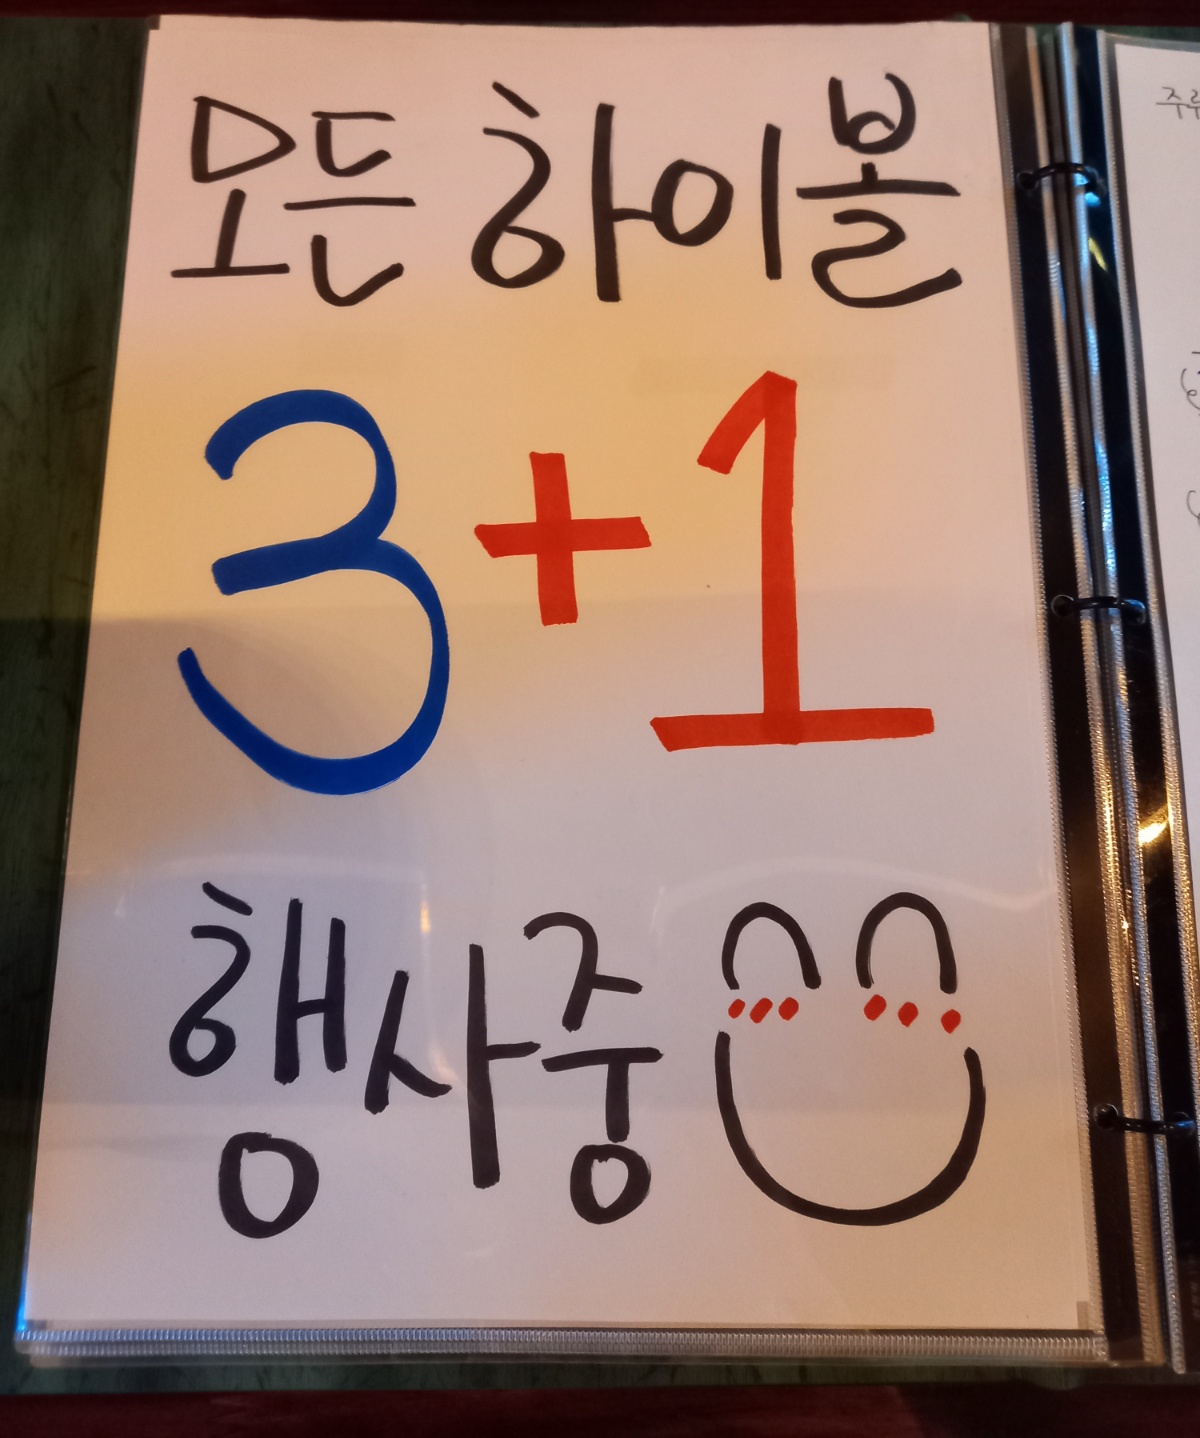 모든 하이볼
3+1
행사중